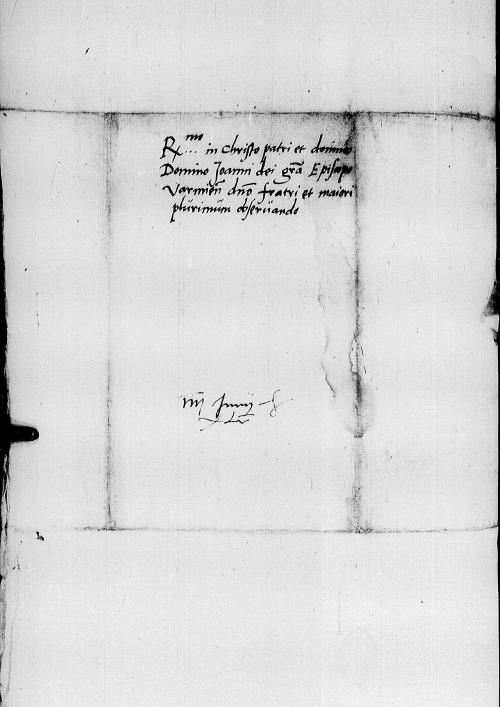 R^mo in Christo patri et domino
Domino Joanni dei gra Episcopo
Varmien dno fratri et maiori
plurimum obseruando
iiij Junij
xlv